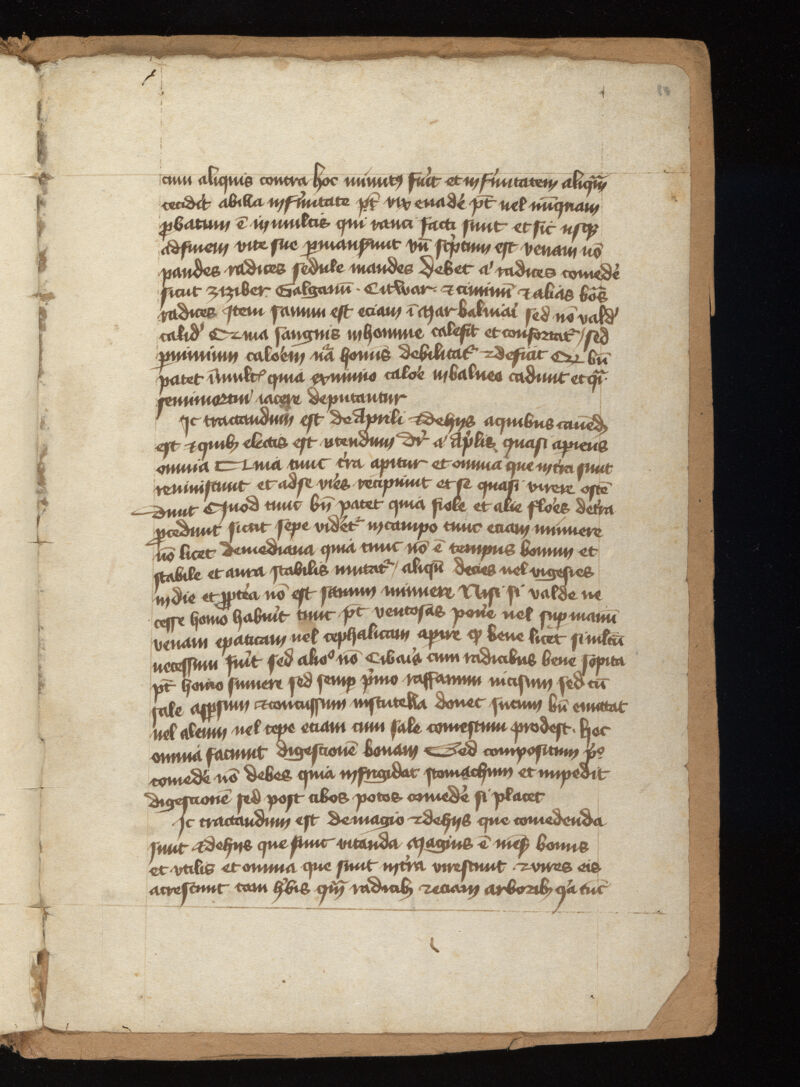 cum aliquis contra hoc minut9 fu'it et infirmitatem aliquā
cecidit ab illa infirmitate pt vix evade' pt vel nūquam
probatum ē in multis qui rauci facti sunt et sic usq3
ad finem vite sue permanserunt vn̄ scriptum est venam nō
pandes radices sedule mandes debet a' radices comede'
sicut zinziber Galganū Citwar et ciminū et alias bo͞s
radices Item sanum est eciam ī Mar balniari sed nō vald'
calid' Quia sanguis in homine calefit et confortat' / sed
per nimium calorem nā hominis debilitat' et deficit Qd bn̄
patet ī mult' quia ex nimio calore in balneo cadunt et qi
semimortui iacere deputantur
Ic tractandum est de Aprili et de hijs a quibus caued
est et quib3 electis est utendum Dr a' Aplis quasi apiens
omnia Quia tunc t'ra apitur et omnia que in t'ra sunt
reviniscunt et ad se vires recipiunt et se quasi virere oste
dunt Quod tunc bn̄ patet quia fiole et alie flores de t'ra
procedunt sicut sepe videt' in campo tunc eciam minuere
nō licet de mediana quia tunc nō ē tempus bonum et
stabile et aura stabilis mutat' / aliqn̄ decies vel vigesies
in die et propt'ea nō est sanum minuere Nisi si valde ne
cesse homo habu'it tunc pt ventosas pone' vel sup manū
venam epaticam vel cephalicam apire qd bene licet si ml'tū
necessum fu'it sed alio9 nō Cibariis cum radicibus bene sopita
pt homo sumere sed semp primo raffanum incisum sed cū
sale aspsum et concussum in scutella donec sucum bn̄ emittat
vel aleum vel cepe eciam cum sale comestum prodest hoc
omnia faciunt digestionē bonam Sed compositum p'o
comede' nō debes quia infrigidat stomachum et impedit
digestionē sed post cibos potos comede' si placet
Ic tractandum est de magio et de hijs que comedenda
sunt et de hijs que sunt vitanda Magius ē mens' bonus
et vtilis et omnia que sunt in t'ra virescunt et vires eis
acrescunt tam h'bis qm̄ radicib3 et eciam arborib3 qa tūc